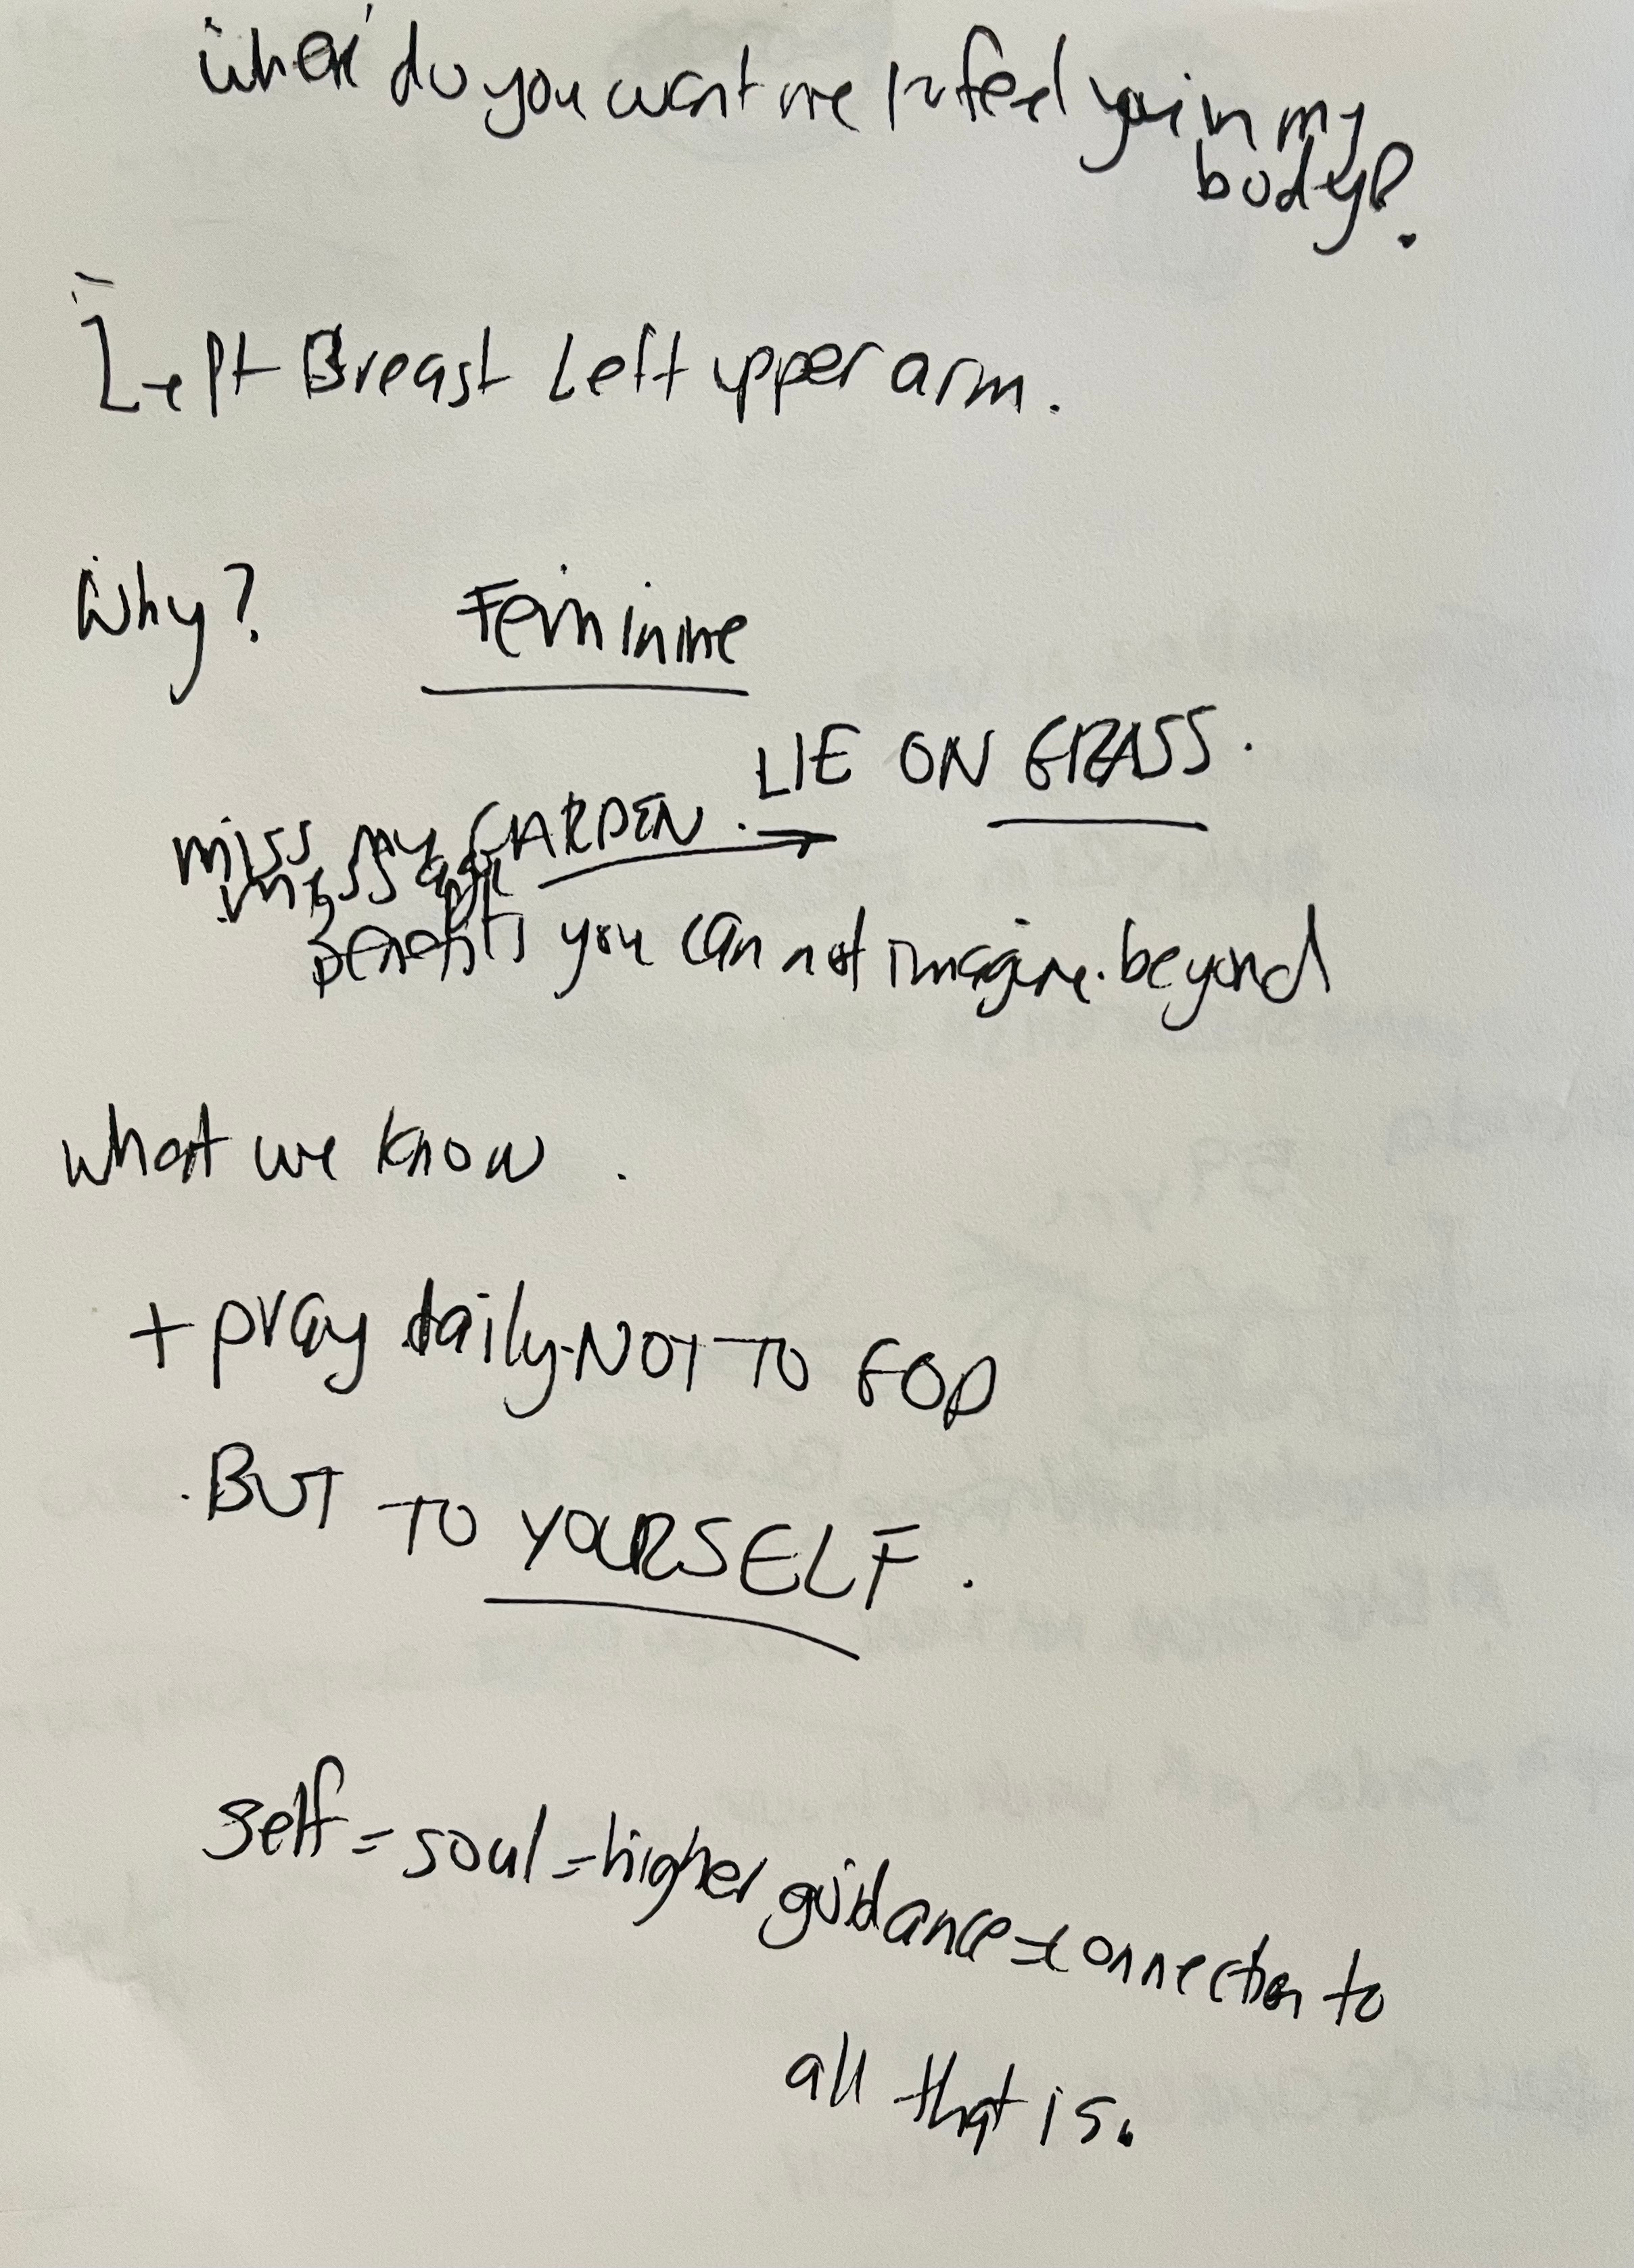 where do you want me to feel you in my
body?
Left Breast Left upper arm.
Why? Feminine
LIE ON GRASS.
miss my GARDEN. →
benefits you can not imagine. beyond
what we know.
+ pray daily. NOT TO GOD
. BUT TO YOURSELF.
self = soul = higher guidance = connection to
all that is.